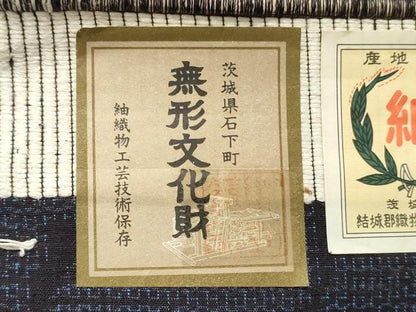 茨城県石下町
無形文化財
紬織物工芸技術保存
産地
紬
茨城
結城郡織物